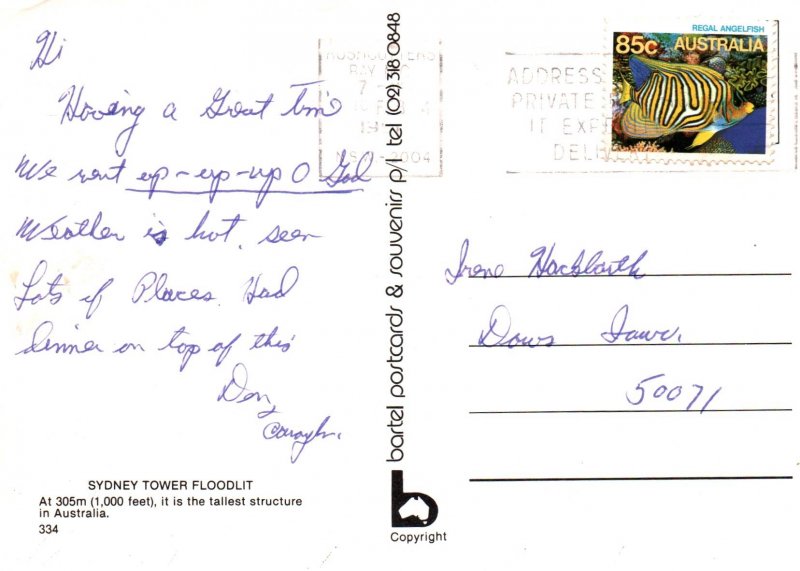 Hi
Having a Great Time
We went up-up-up O God
Weather is hot. seen
Lots of Places. Had
dinner on top of this
Don
SYDNEY TOWER FLOODLIT
At 305m (1,000 feet), it is the tallest structure
in Australia.
334
bartel postcards & souvenirs p/l tel (02) 318 0848
b
Copyright
RUSHCUTTERS
BAY
2004
ADDRESS
PRIVATE
IT
REGAL ANGELFISH
85c AUSTRALIA
Irene Hackbarth
Dows Iowa.
50071